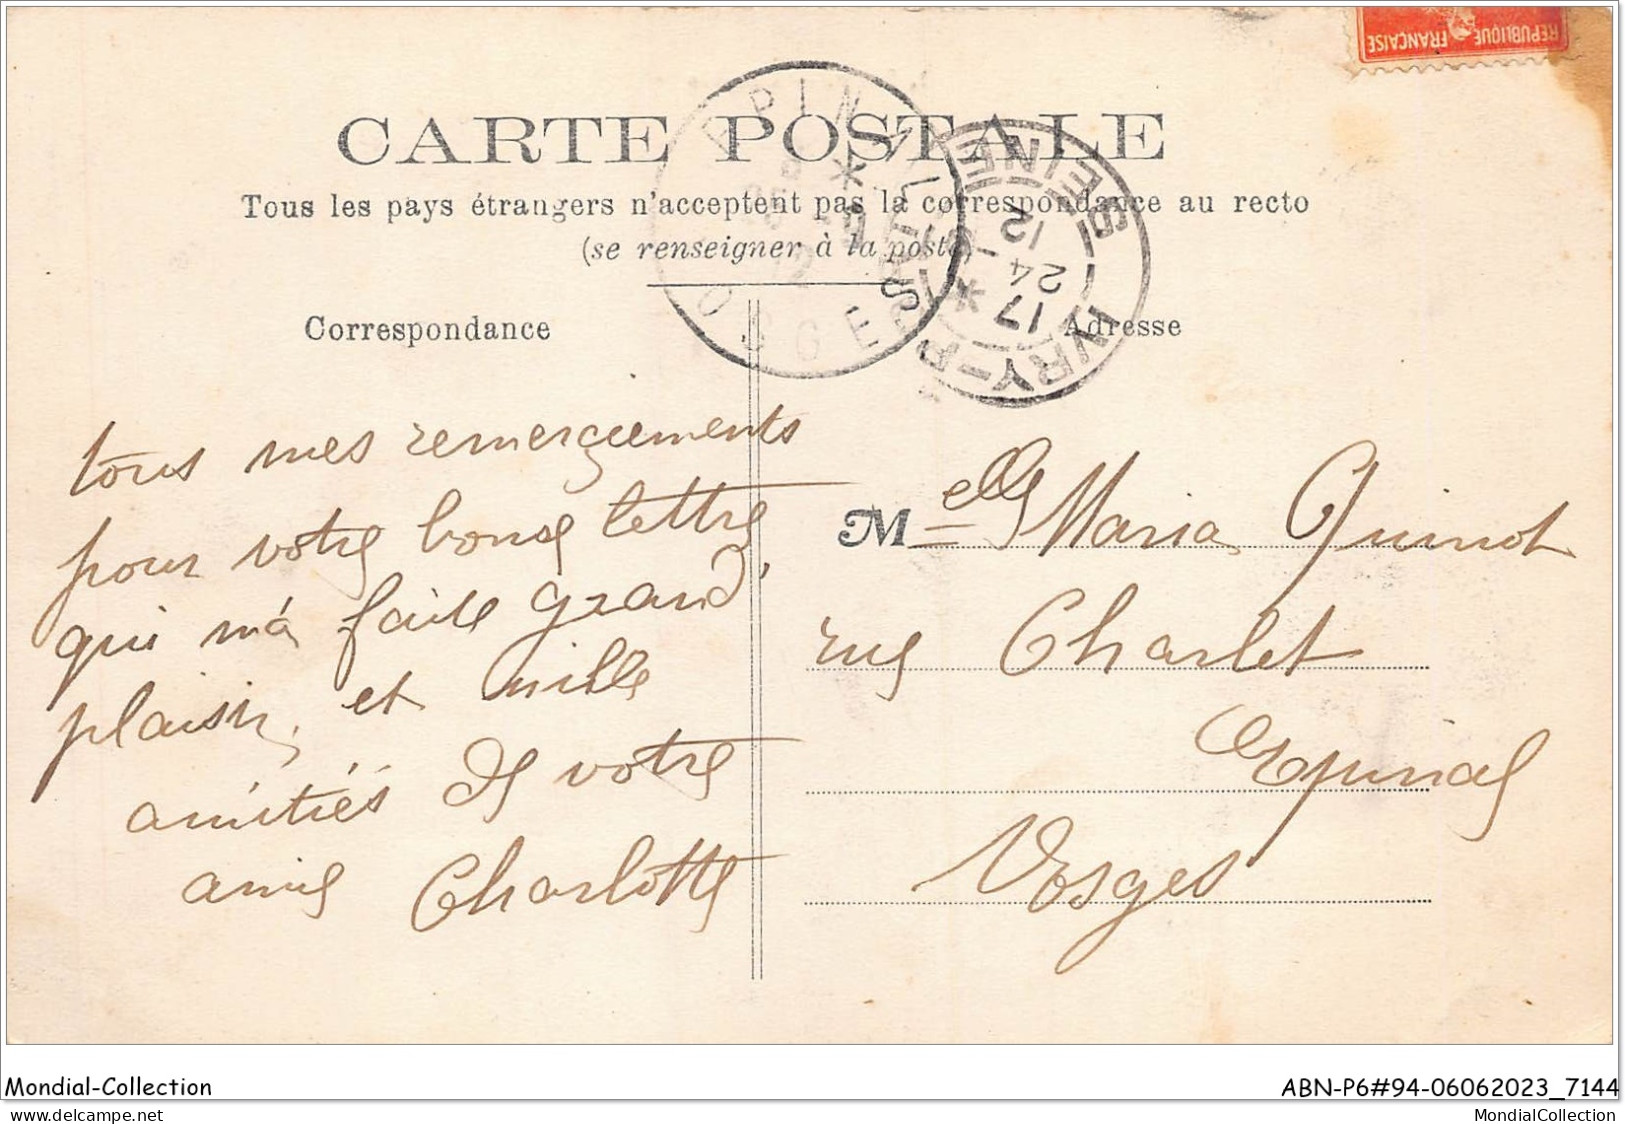 REPUBLIQUE FRANÇAISE
CARTE POSTALE
Tous les pays étrangers n'acceptent pas la correspondance au recto
(se renseigner à la poste)
Correspondance
Adresse
EPINAL
VOSGES
IVRY-P
SEINE
17
24
12
tous mes remerciements
pour votre bonne lettre
qui m'a faite grand
plaisir, et mille
amitiés de votre
amie Charlotte
Melle Maria Guinot
rue Charlet
Epinal
Vosges
Mondial-Collection
ABN-P6#94-06062023_7144
delcampe.net
MondialCollection